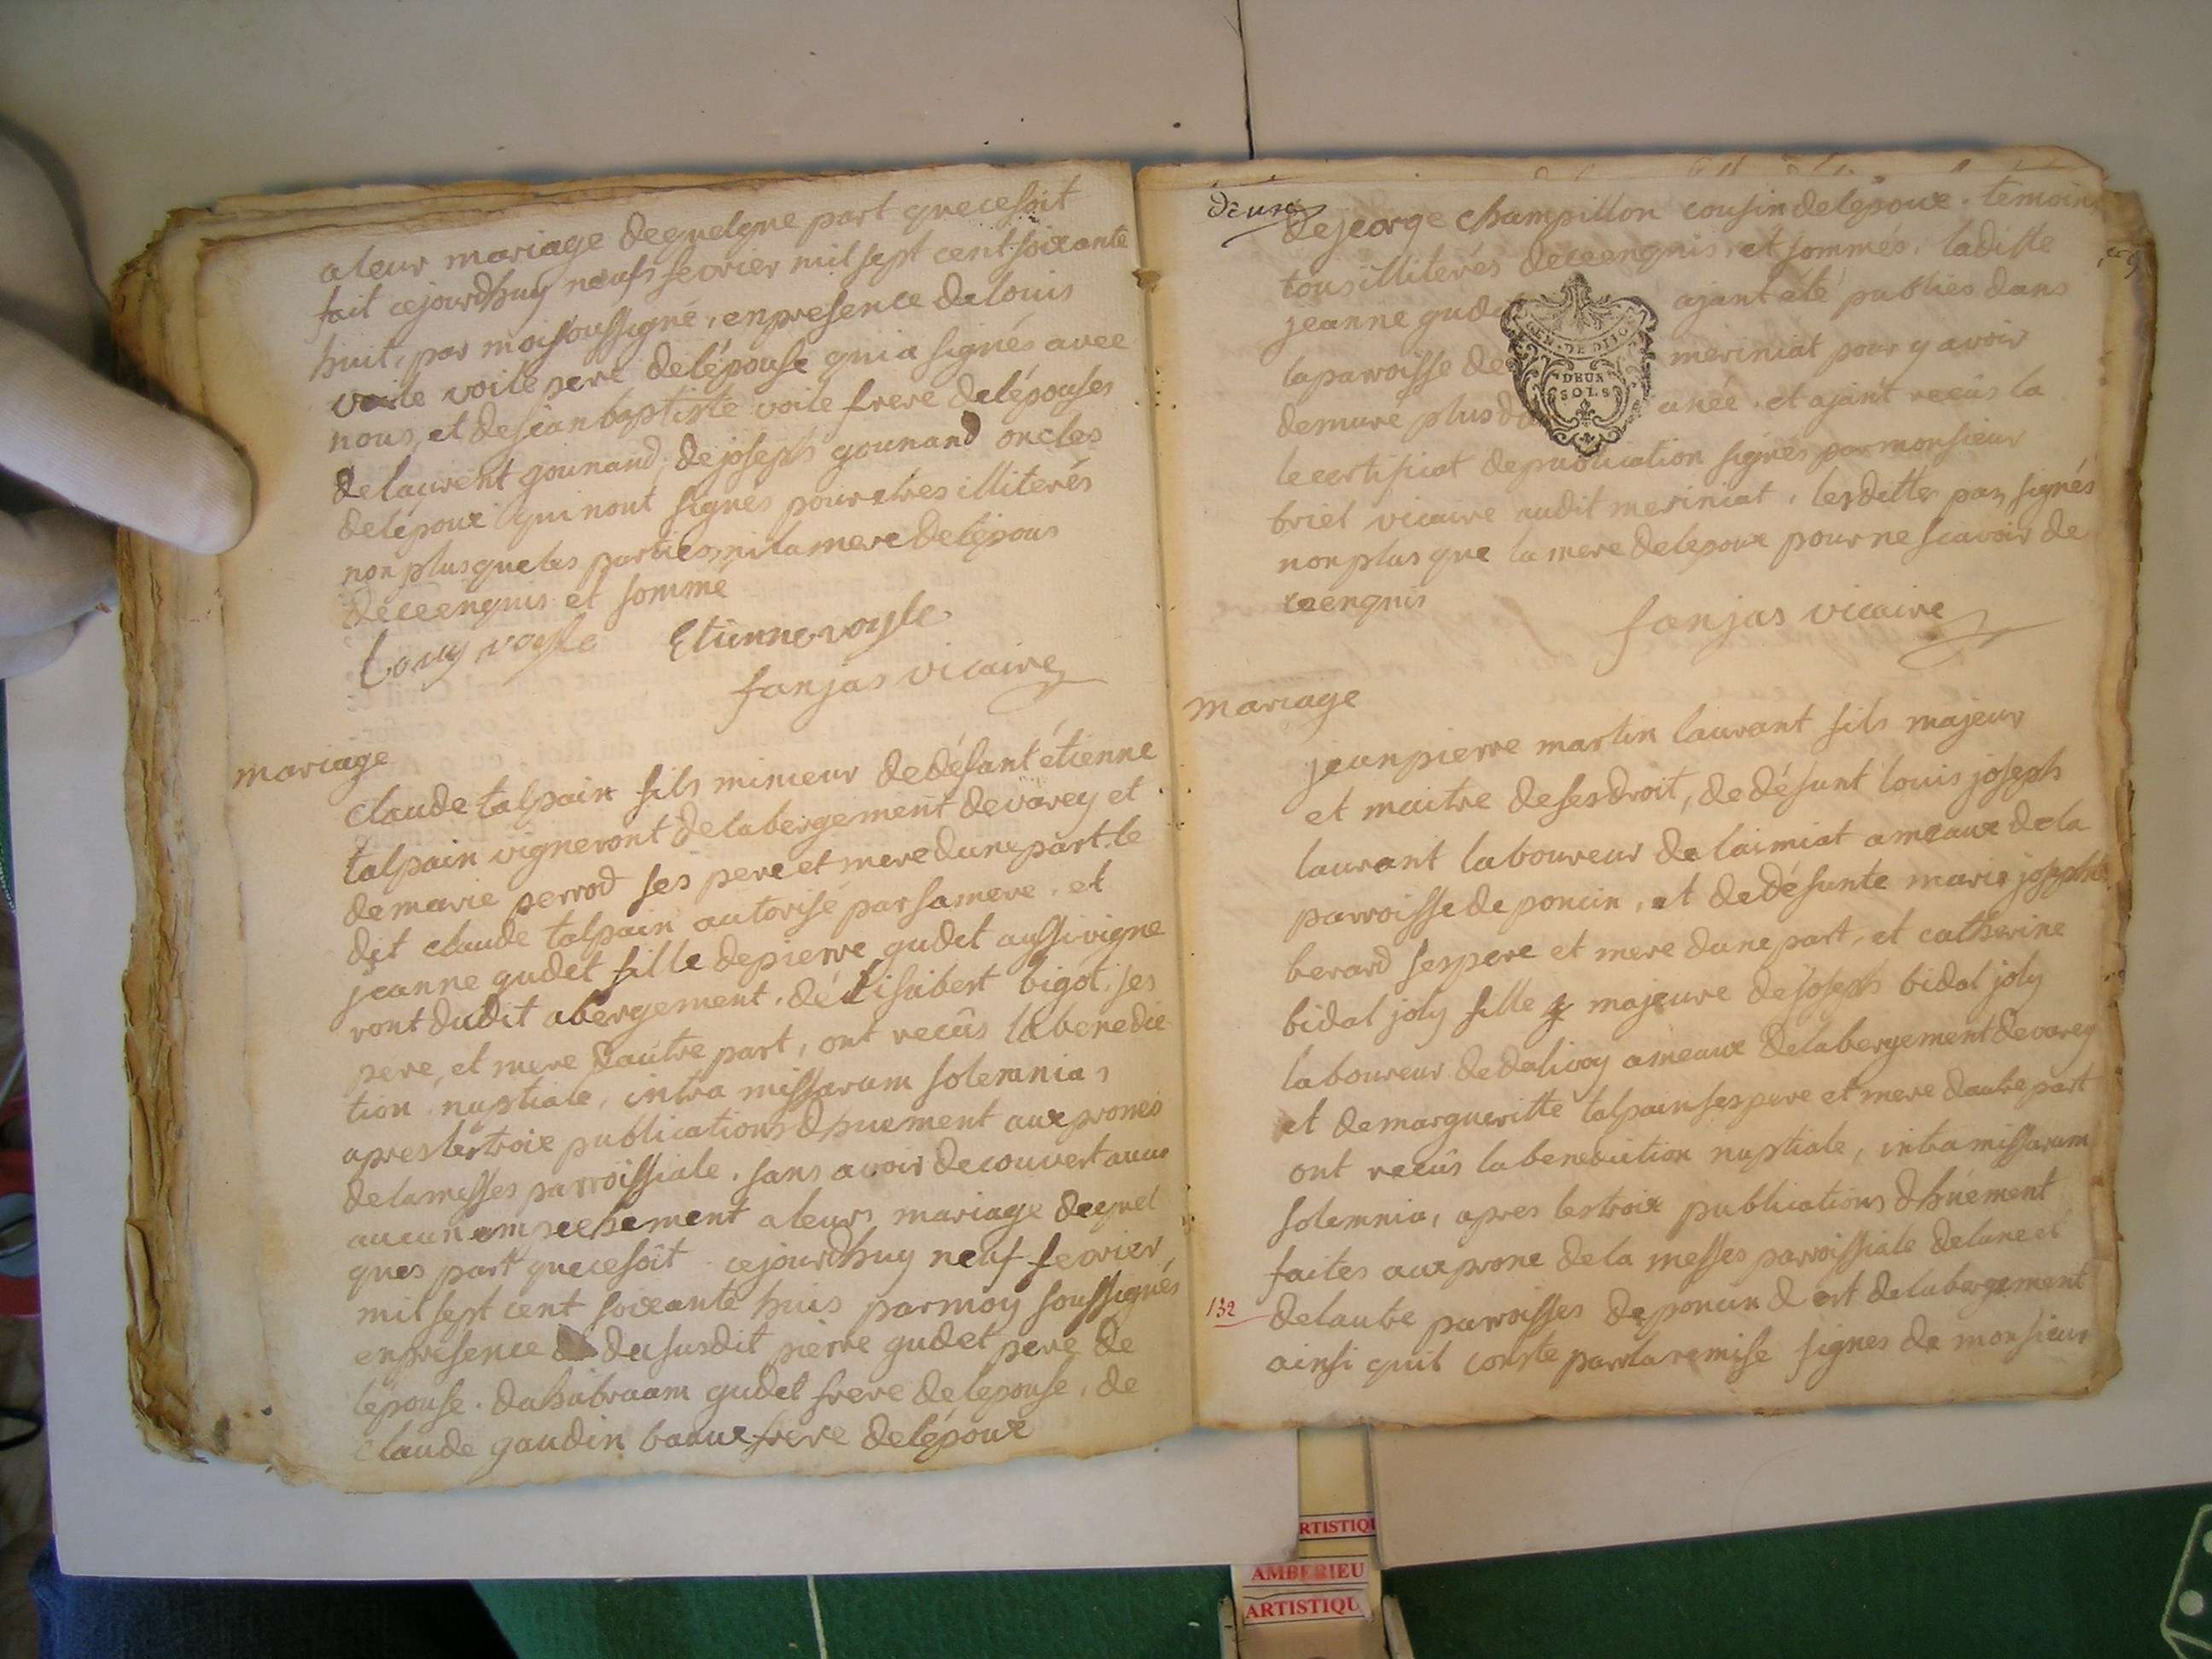 aleur mariage dequelque part quecesoit
fait cejourdhuy neufs fevrier mil sept cent soixante
huit, par moisoussigné, enpresence delouis
voile voile pere delépouse quia signés avec
nous, et dejean baptiste voile frere delépouses
delaurent gounand, dejoseph gounand oncles
delépoux qui nont signés pour etres illiterés
non plusqueles parties, nilamere delépous
deceenquis et sommé
Louy voyle Etienne voyle
fanjas vicaire
mariage
claude talpain fils mineur dedéfant étienne
talpain vigneront delabergement devarey et
demarie perrod ses pere et mere dune part. le
dit claude talpain autorisé par samere, et
jeanne gudet fille depierre gudet aussi vigne
ront dudit abergement, délisabert bigot, ses
pere, et mere dautre part, ont recûs la benedic
tion nuptiale, intra missarum solemnias
apreslestroix publications dhuement aux prones
delamesses parroissiale, sans avoir decouvert aucu
aucun empechement aleurs mariage dequel
ques part quecesoit cejourdhuy neuf fevrier
mil sept cent soixante huis parmoy soussignés
enpresence dususdit pierre gudet pere de
lépouse. dahabraam gudet frere delepouse, de
claude gaudin baux frere delépoux
deux
dejeorge champillon cousin delépoux. temoins
tous illiterés deceenquis, et sommés. laditte
jeanne gudet ajant été publiés dans
laparroisse de meriniat pour y avoir
demuré plus d anée. et ajant recûs la
lecertificat depublication signés par monsieur
briel vicaire audit meriniat, lesdittes pas signés
non plus que la mere delepoux pour ne scavoir de
ceenquis
fanjas vicaire
GEN. DE DIJON
DEUX
SOLS
mariage
jean pierre martin laurant fils majeur
et maitre desesdroit, de défunt louis joseph
laurant laboureur de laimiat ameaux dela
parroisse de poncin, et dedéfunte marie josephte
berard sespere et mere dune part, et catherine
bidal joly fille majeure de joseph bidal joly
laboureur dedalivoy ameaux delabergement devarey
et demargueritte talpain sespere et mere dautre part
ont recûs labenediction nuptiale, intra missarum
solemnia, apres lestroix publications dhuement
faites aux prone dela messes parroissiale delune et
132
delautre parroisses de poncin d et delabergement
ainsi quil conste parrla remise signes de monsieur
RTISTIQ
AMBERIEU
ARTISTIQU